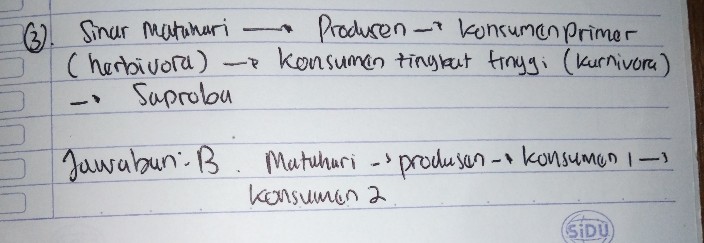 (3). Sinar Matahari → Produsen → konsumen primer
(herbivora) → konsumen tingkat tinggi (karnivora)
→ Saproba
Jawaban: B. Matahari → produsen → konsumen 1 →
konsumen 2
SiDU